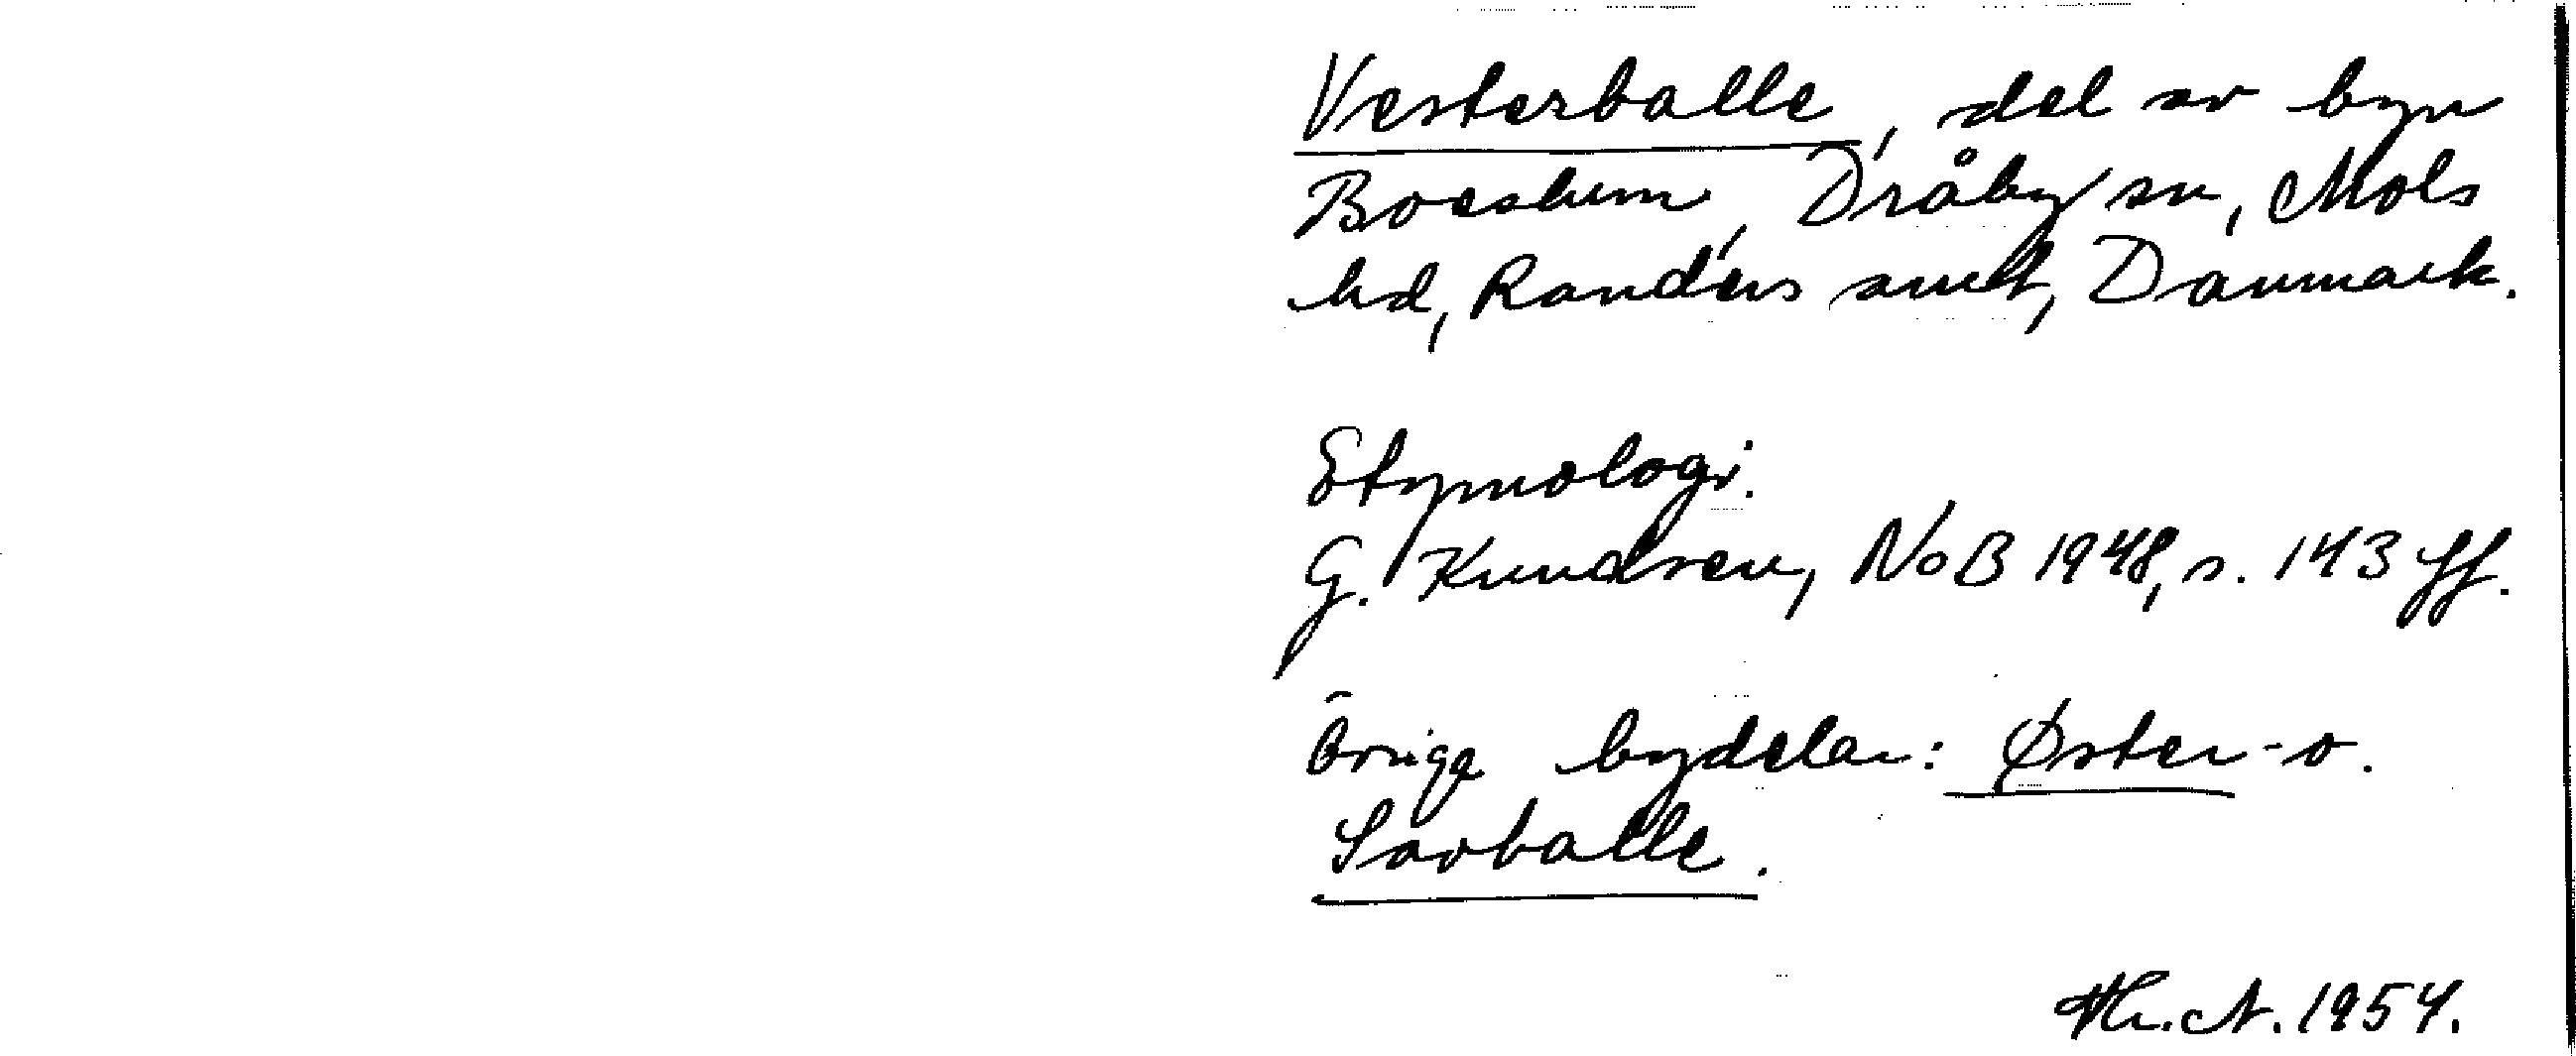 Vesterballe, del av byn
Boeslum, Dråby sn, Mols
hd, Randers amt, Danmark.
Etymologi:
G. Knudsen, NoB 1948, s. 143 ff.
Övriga bydelar: Øster- o.
Savballe.
1954.